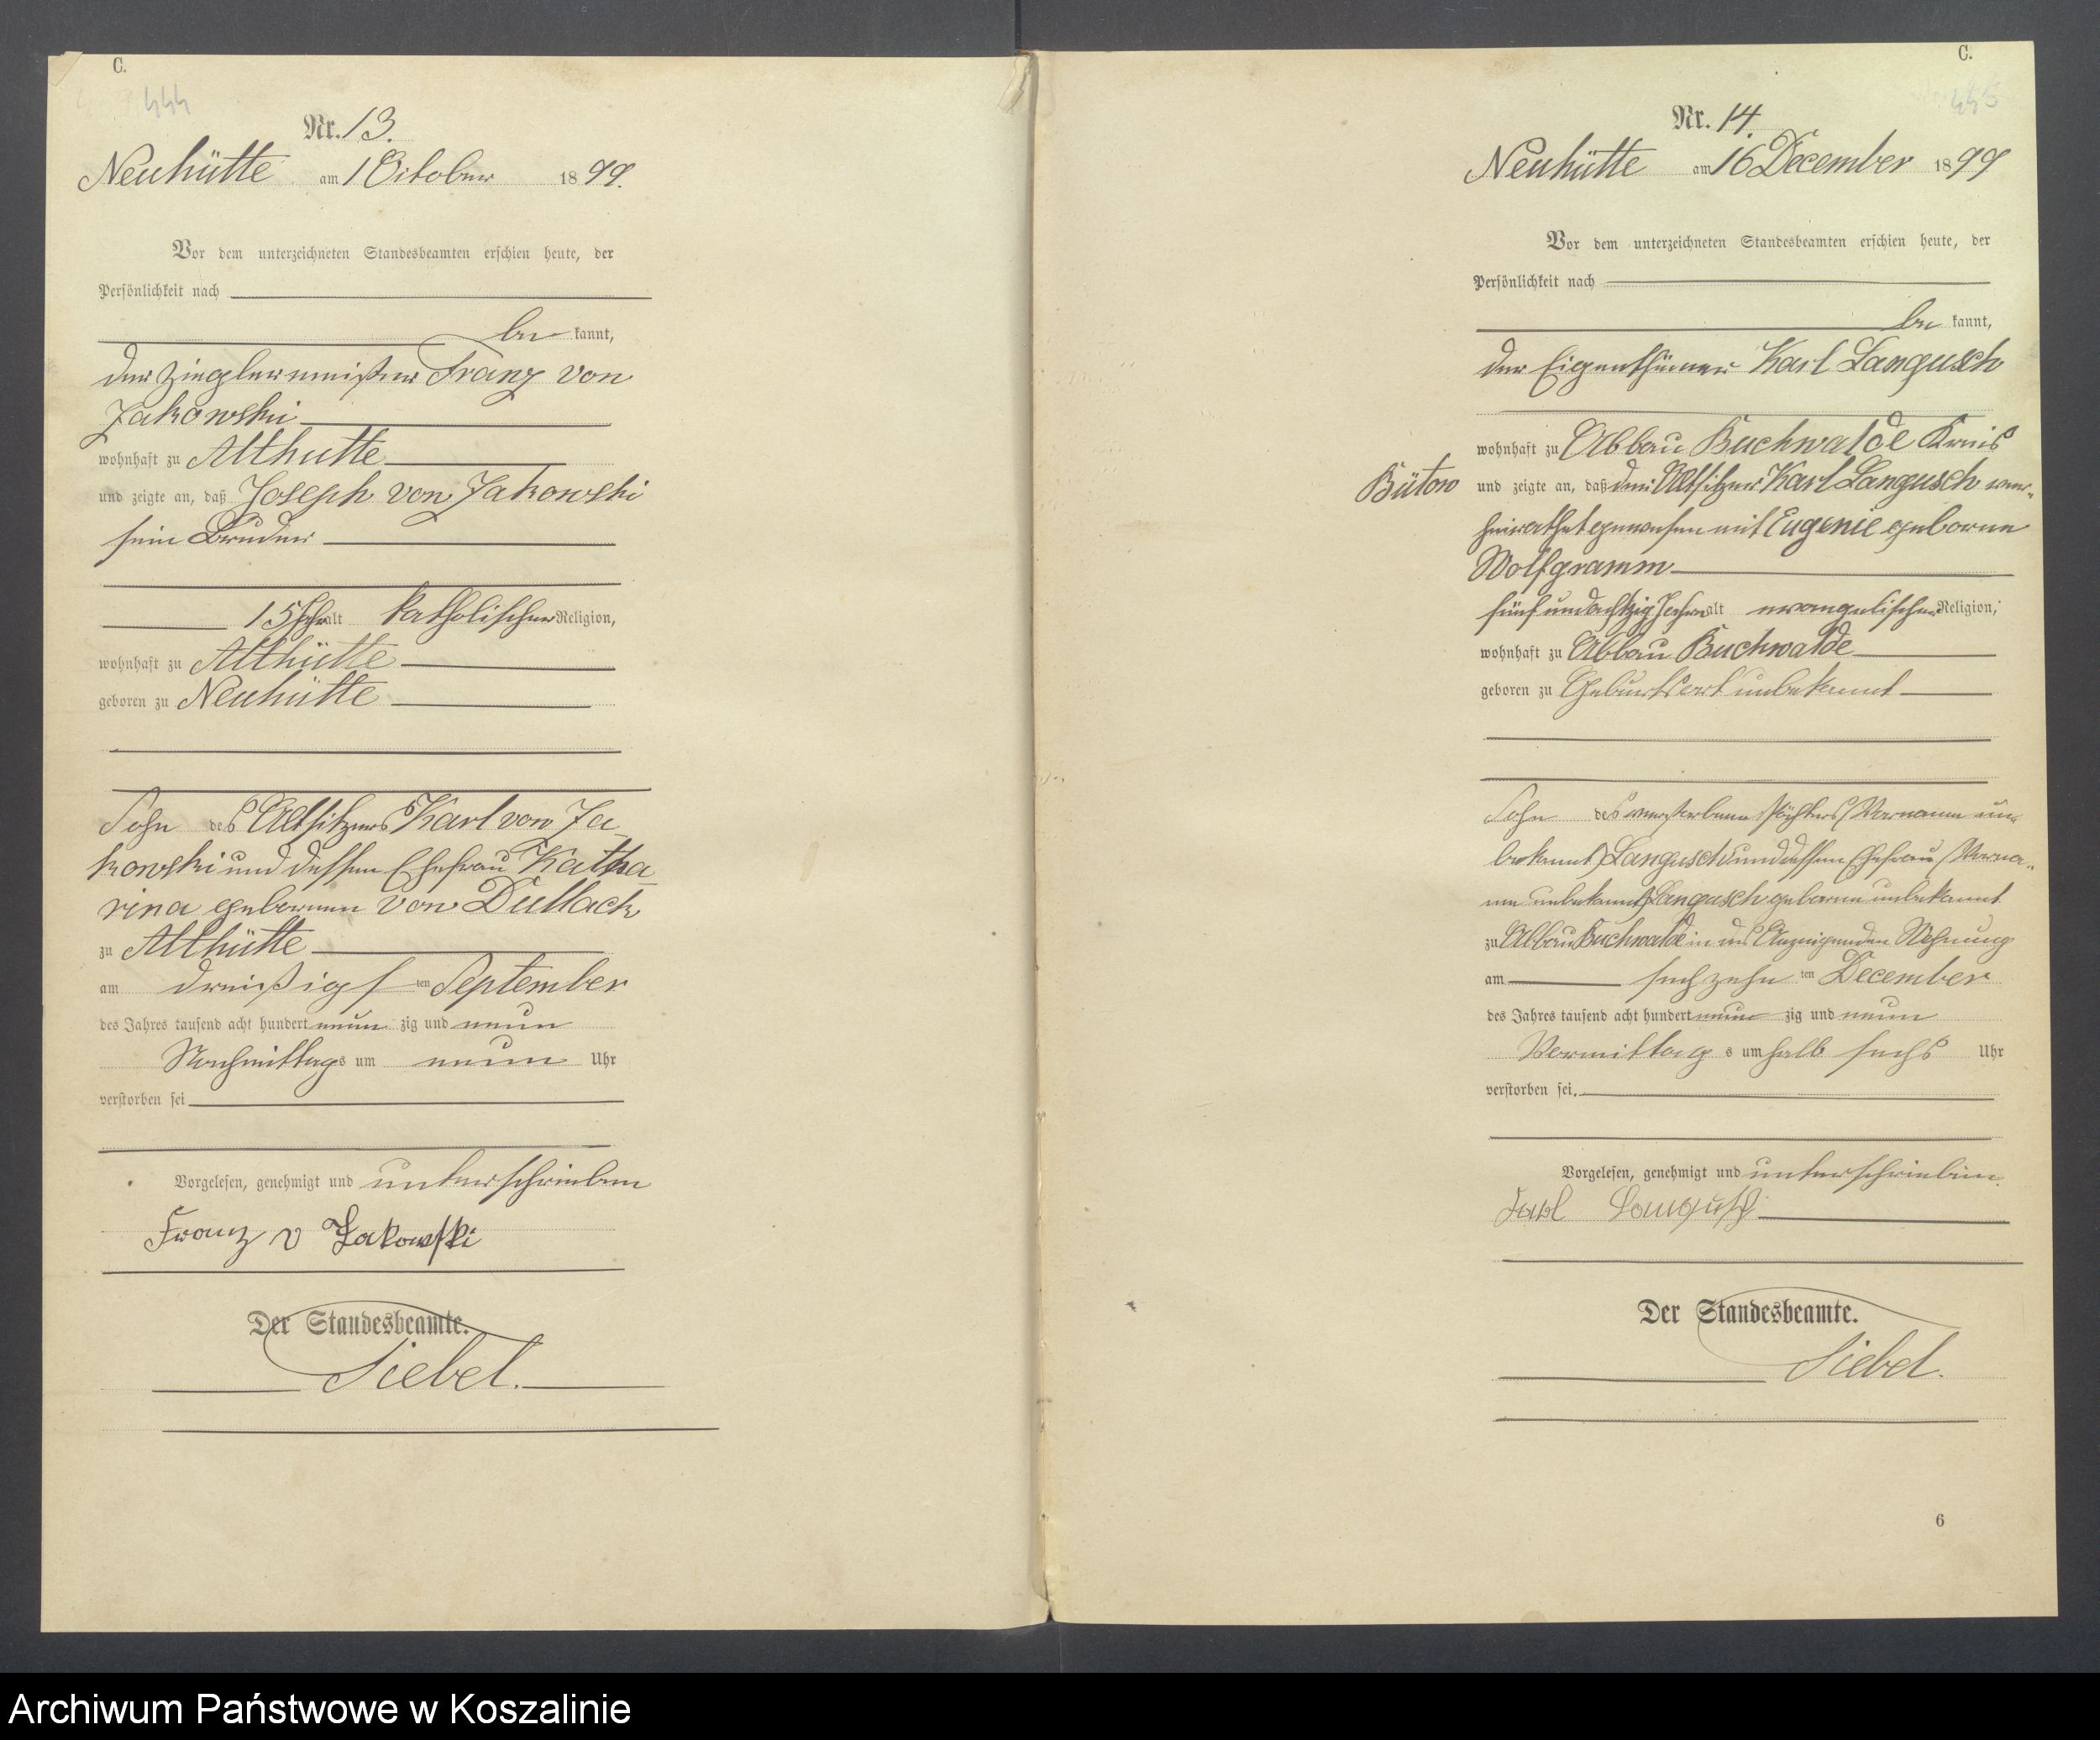 C.
444
Nr. 13.
Neuhütte am 1 Oktober 1899.
Vor dem unterzeichneten Standesbeamten erschien heute, der
Persönlichkeit nach
be kannt,
der Zieglermeister Franz von
Jakowski
wohnhaft zu Althutte
und zeigte an, daß Joseph von Jakowski
sein Bruder
15 Jahr alt katholischer Religion,
wohnhaft zu Althütte
geboren zu Neuhütte
Sohn des Altsitzers Karl von Ja-
kowski und dessen Ehefrau Katha-
rina geborenen von Dullack
zu Althütte
am dreißigst ten September
des Jahres tausend acht hundert neun zig und neun
Nachmittags um neun Uhr
verstorben sei
Vorgelesen, genehmigt und unterschrieben
Franz v Jakowski
Der Standesbeamte.
Siebel.
C.
445
Nr. 14.
Neuhütte am 16 December 1899
Vor dem unterzeichneten Standesbeamten erschien heute, der
Persönlichkeit nach
be kannt,
der Eigenthümer Karl Langusch
wohnhaft zu Abbau Buchwalde Kreis
Bütow und zeigte an, daß der Altsitzer Karl Langusch ver-
heirathet gewesen mit Eugenie geborne
Wolfgramm
fünf und achtzig Jahre alt evangelischer Religion,
wohnhaft zu Abbau Buchwalde
geboren zu Geburtsort unbekannt
Sohn des verstorbenen Pächters (Vorname un-
bekannt) Langusch und dessen Ehefrau (Vorna-
me unbekannt) Langusch geborne unbekannt
zu Abbau Buchwalde in des Anzeigenden Wohnung
am sechzehn ten December
des Jahres tausend acht hundert neun zig und neun
Vormittag s um halb sechs Uhr
verstorben sei.
Vorgelesen, genehmigt und unterschrieben.
Karl Langusch
Der Standesbeamte.
Siebel.
6
Archiwum Państwowe w Koszalinie